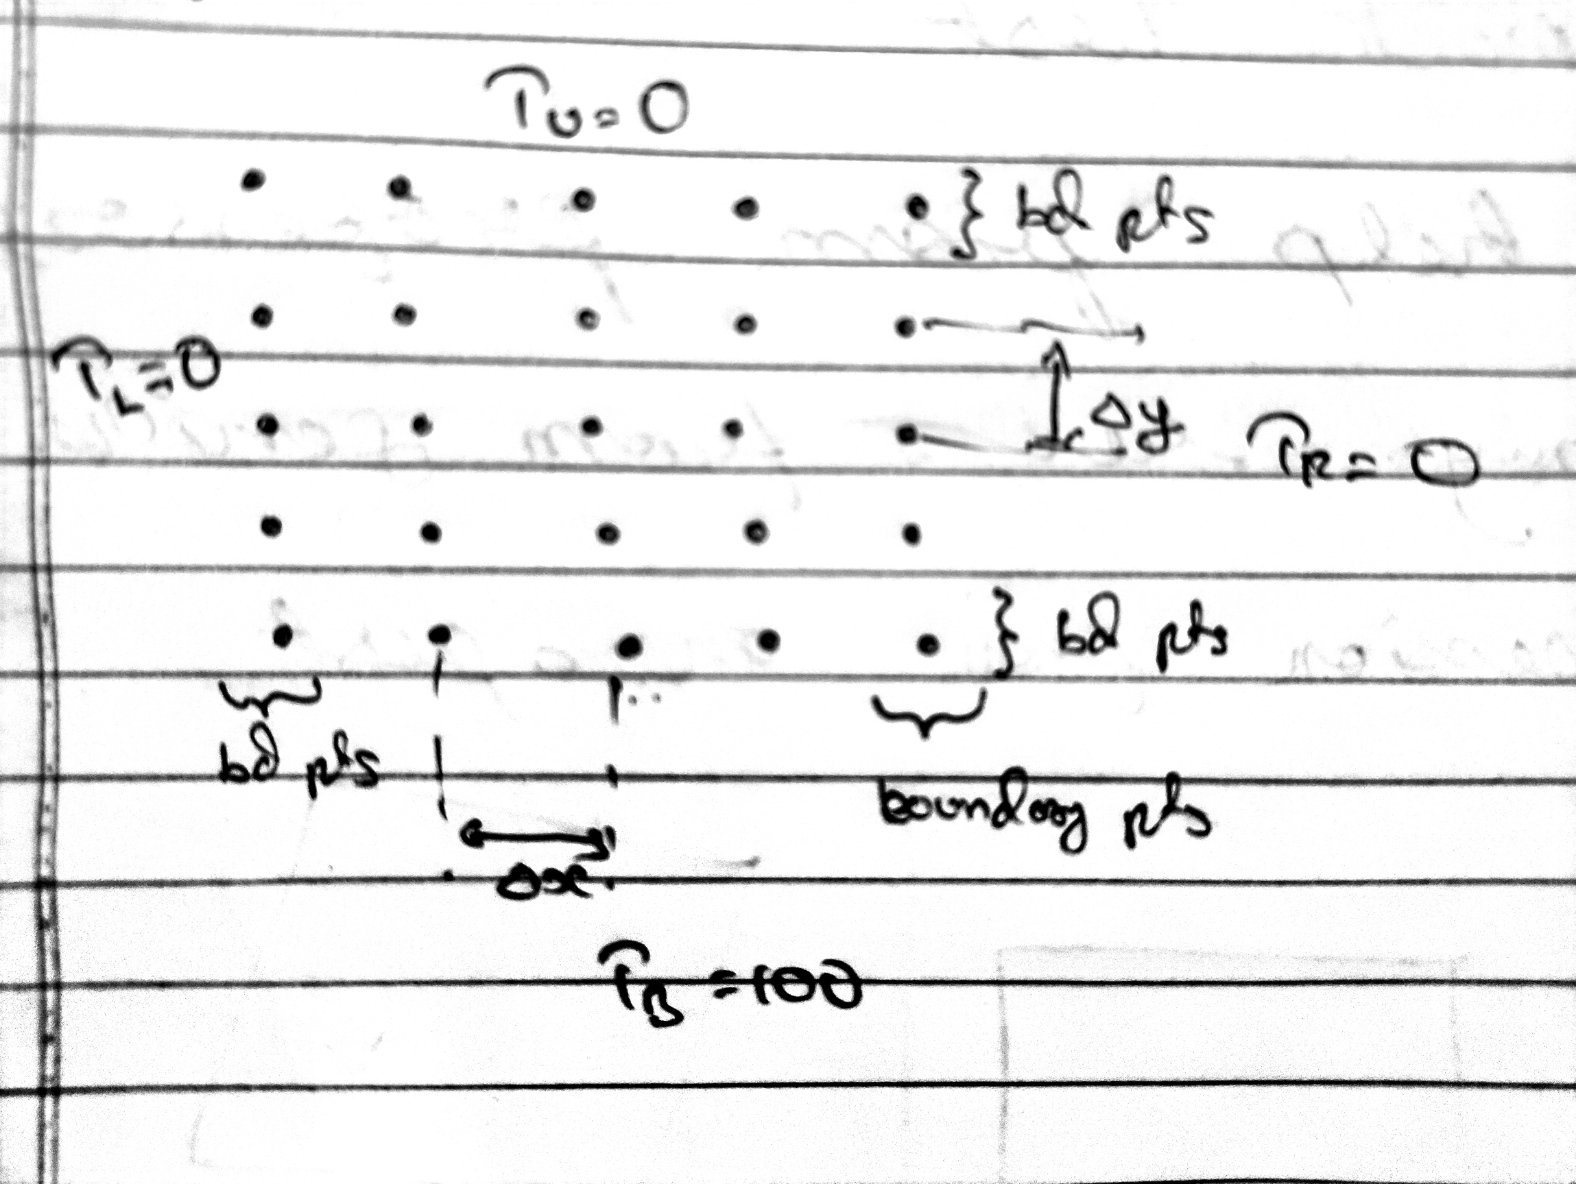 T_U = 0
} bd pts
T_L = 0
Δy
T_R = 0
} bd pts
bd pts
boundary pts
Δx
T_B = 100